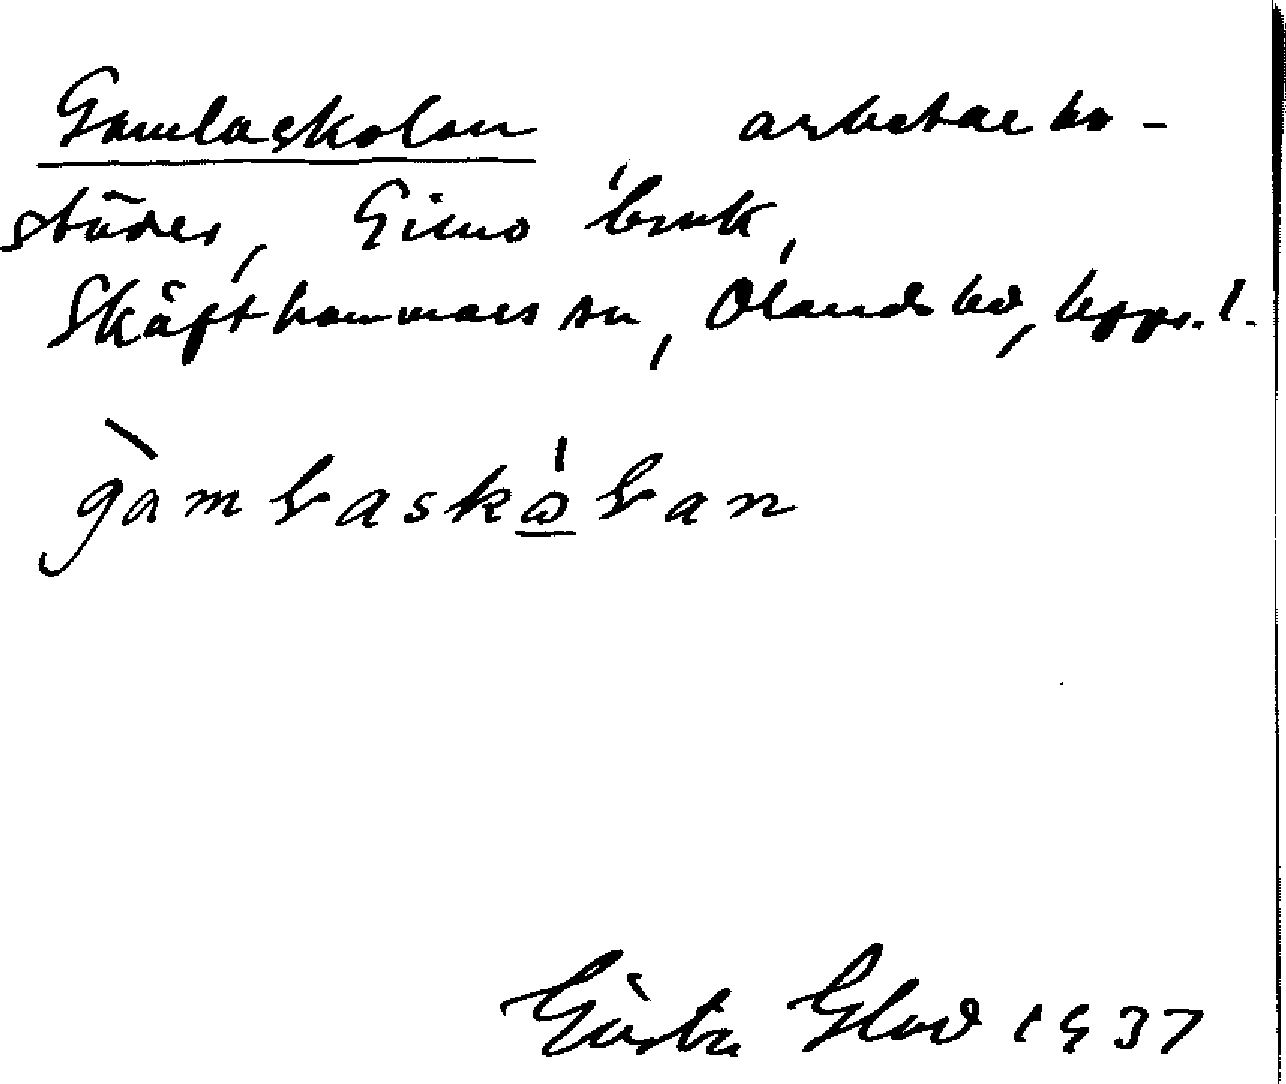 Gamlaskolan arbetarebo-
städer, Gimo bruk,
Skäfthammars sn, Olands hd, Upps. l.
gàmlaskωlan
Gösta Glad 1937